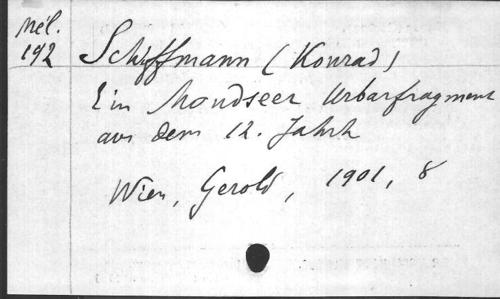 Mél.
192
Schiffmann (Konrad)
Ein Mondseer Urbarfragment
aus dem 12. Jahrh
Wien, Gerold, 1901, 8